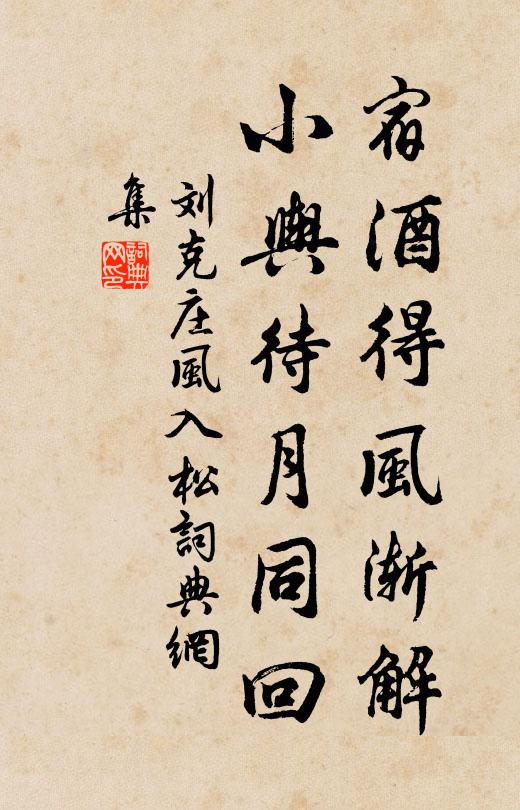 宿酒得風漸解
小輿待月同回
刘克庄風入松詞典網
集
詞典網印